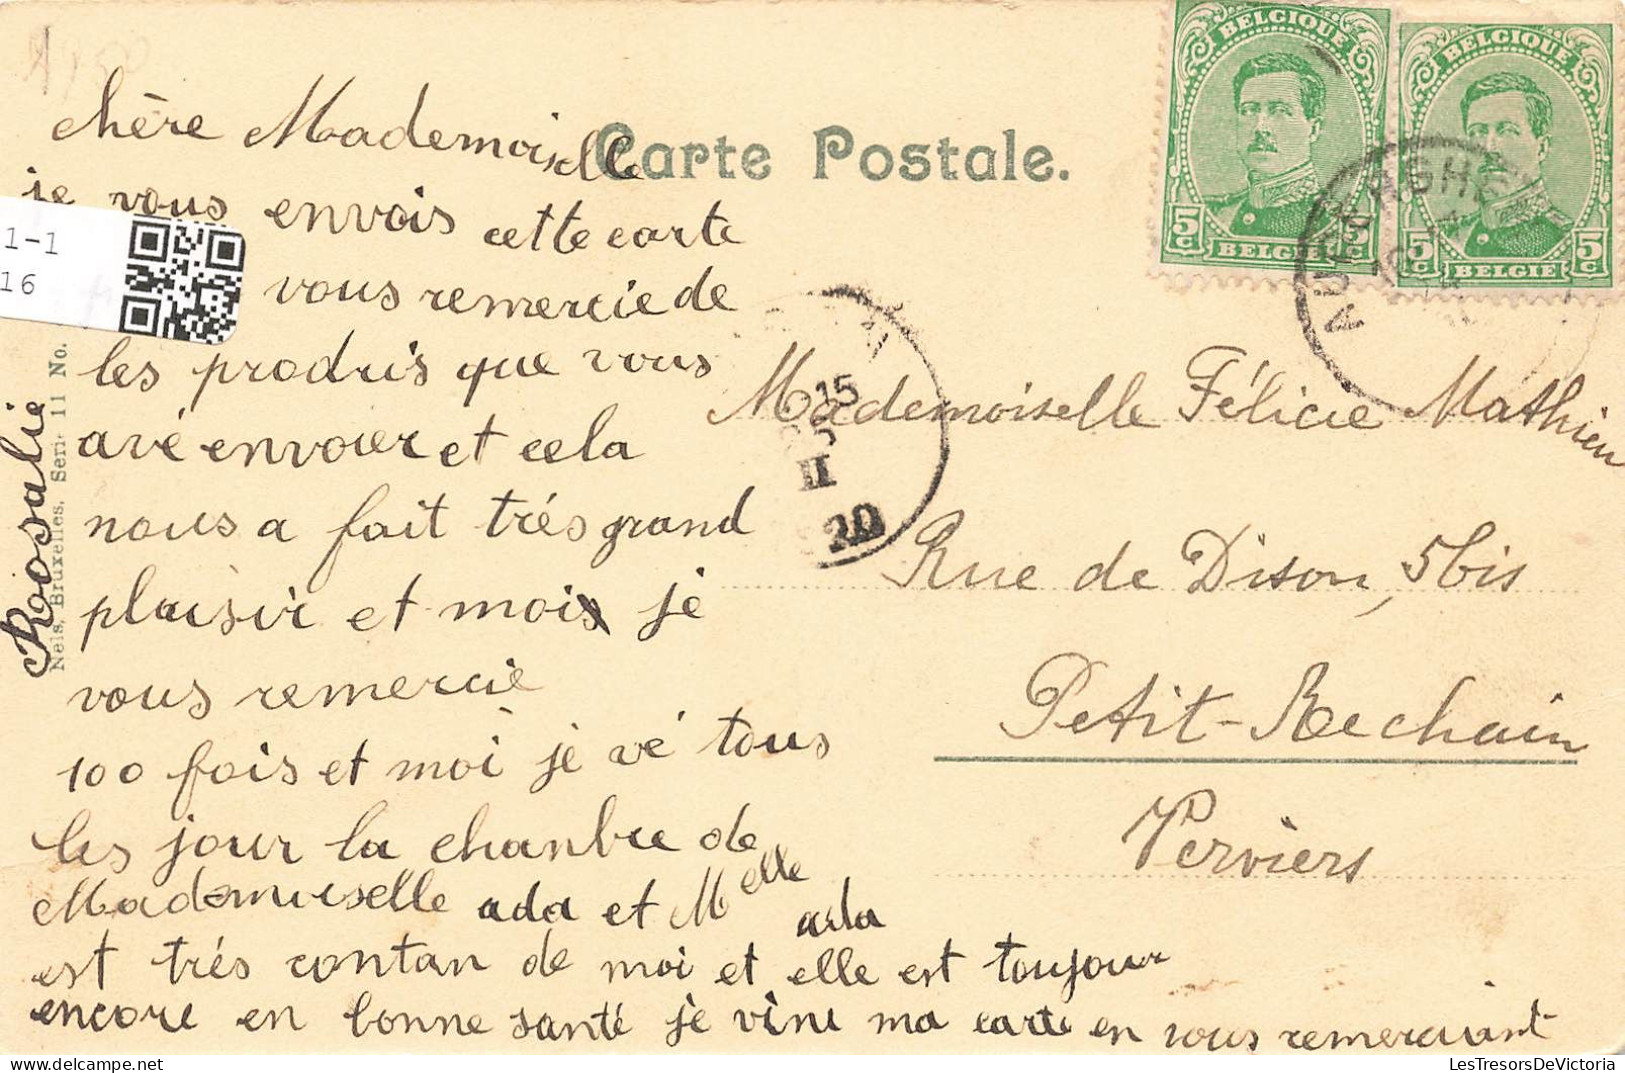 Carte Postale.
BELGIQUE
5c 5c
BELGIË
BELGIQUE
5c 5c
BELGIË
15
II
20
1-1
16
chère Mademoiselle
je vous envois cette carte
vous remercie de
les produis que vous
avé envouer et cela
nous a fait trés grand
plaisir et mois je
vous remercie
100 fois et moi je vé tous
les jour la chanbre de
Mademoiselle ada et Melle ada
est trés contan de moi et elle est toujour
encore en bonne santé je vini ma carte en vous remerciant
Roosalie
Nels, Bruxelles. Serie 11 No.
Mademoiselle Félicie Mathieu
Rue de Dison, 5bis
Petit-Rechain
Verviers
LesTresorsDeVictoria